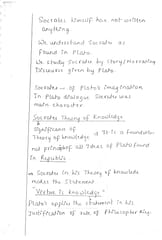 Socrates himself has not written
anything.
We understand Socrates as
found in Plato
We study Socrates by Story/Narrating
Discourse given by Plato.
Socrates - of Plato's imagination
In Plato dialogue Socrates was
main character
Socrates Theory of Knowledge
Significance of
Theory of knowledge is It is a foundatio-
nal principle of all Ideas of Plato found
in Republic
→ Socrates in his Theory of Knowledge
makes the statement
"Virtue is knowledge"
Plato applies the statement in his
Justification of rule of Philosopher King.